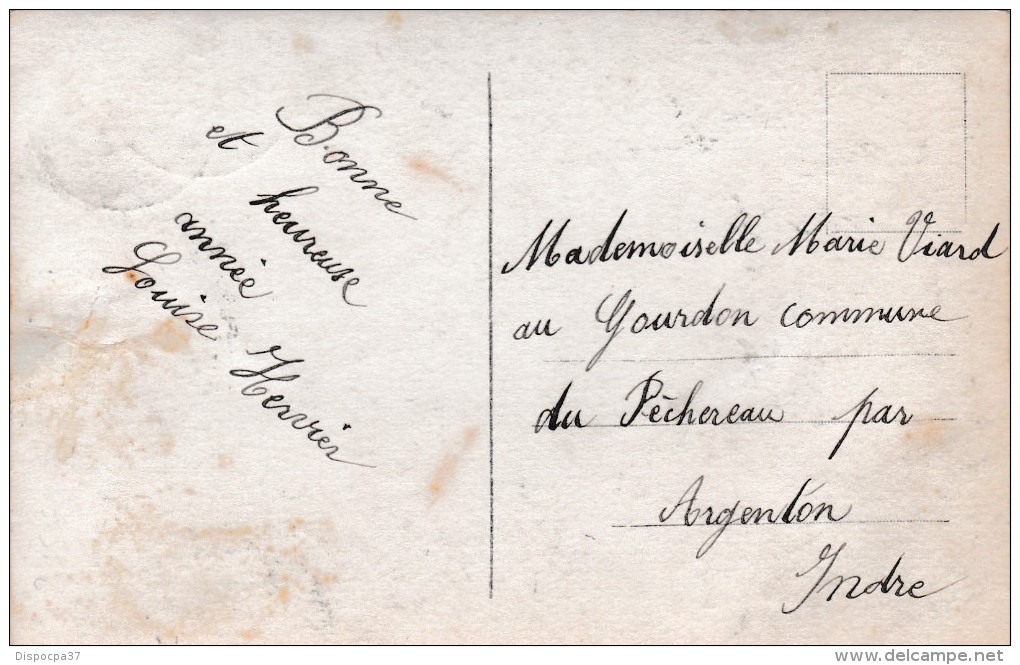 Bonne
et heureuse
année
Louise Hervier
Mademoiselle Marie Viard
au Gourdon commune
du Pêchereau par
Argenton
Indre
Dispocpa37
delcampe.net